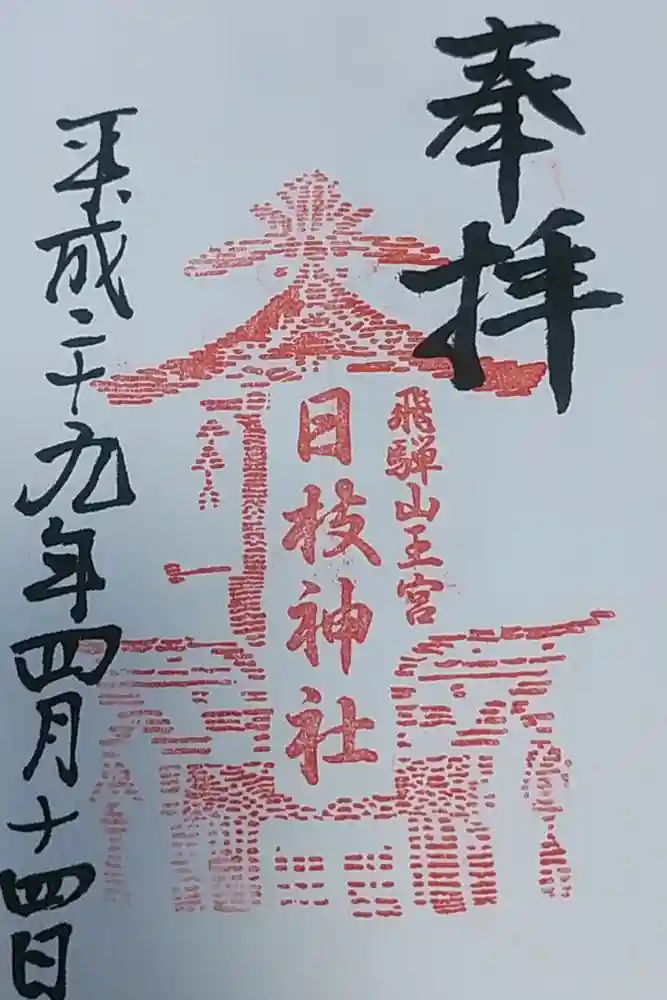 奉拝
飛騨山王宮
日枝神社
平成二十九年四月十四日